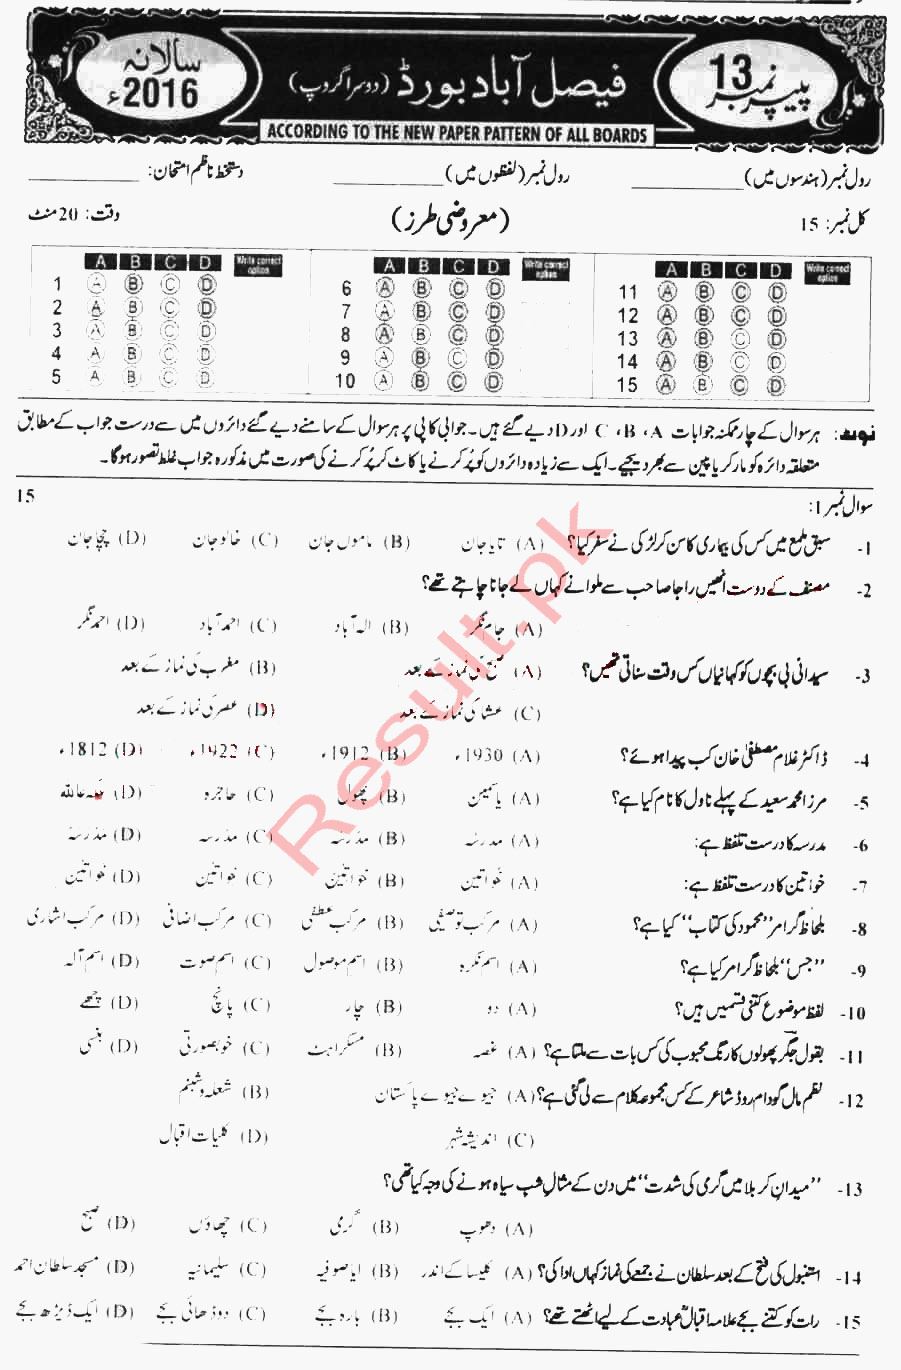 سالانہ 2016ء
فیصل آباد بورڈ (دوسرا گروپ)
پیپر نمبر 13
ACCORDING TO THE NEW PAPER PATTERN OF ALL BOARDS
رول نمبر (ہندسوں میں) ____________ رول نمبر (لفظوں میں) ____________ دستخط ناظم امتحان: ____________
کل نمبر: 15 (معروضی طرز) وقت: 20 منٹ
A B C D Write correct option A B C D Write correct option A B C D Write correct option
1 A B C D 6 A B C D 11 A B C D
2 A B C D 7 A B C D 12 A B C D
3 A B C D 8 A B C D 13 A B C D
4 A B C D 9 A B C D 14 A B C D
5 A B C D 10 A B C D 15 A B C D
نوٹ: ہر سوال کے چار ممکنہ جوابات A، B، C اور D دیے گئے ہیں۔ جوابی کاپی پر ہر سوال کے سامنے دیے گئے دائروں میں سے درست جواب کے مطابق
متعلقہ دائرہ کو مارکر یا پین سے بھر دیجیے۔ ایک سے زیادہ دائروں کو پُر کرنے یا کاٹ کر پُر کرنے کی صورت میں مذکورہ جواب غلط تصور ہوگا۔
سوال نمبر 1: 15
1- سبق ملمع میں کس کی بیماری کا سن کر لڑکی نے سفر کیا؟ (A) تایا جان (B) ماموں جان (C) خالو جان (D) چچا جان
2- مصنف کے دوست انھیں راجا صاحب سے ملوانے کہاں لے جانا چاہتے تھے؟
(A) جام نگر (B) الہ آباد (C) احمد آباد (D) احمد نگر
3- سیدانی بی بچوں کو کہانیاں کس وقت سناتی تھیں؟ (A) صبح کی نماز کے بعد (B) مغرب کی نماز کے بعد
(C) عشا کی نماز کے بعد (D) عصر کی نماز کے بعد
4- ڈاکٹر غلام مصطفیٰ خان کب پیدا ہوئے؟ (A) 1930ء (B) 1912ء (C) 1922ء (D) 1812ء
5- مرزا محمد سعید کے پہلے ناول کا نام کیا ہے؟ (A) یاسمین (B) پھول (C) حاجرہ (D)
6- مدرسہ کا درست تلفظ ہے: (A) مدرسہ (B) مدرسہ (C) مدرسہ (D) مدرسہ
7- خواتین کا درست تلفظ ہے: (A) خواتین (B) خواتین (C) خواتین (D) خواتین
8- بلحاظ گرامر "محمود کی کتاب" کیا ہے؟ (A) مرکب توصیفی (B) مرکب عطفی (C) مرکب اضافی (D) مرکب اشاری
9- "جس" بلحاظ گرامر کیا ہے؟ (A) اسم نکرہ (B) اسم موصول (C) اسم صوت (D) اسم آلہ
10- لفظ موضوع کتنی قسمیں ہیں؟ (A) دو (B) چار (C) پانچ (D) چھے
11- بقول جگر پھولوں کا رنگ محبوب کی کس بات سے ملتا ہے؟ (A) غصہ (B) مسکراہٹ (C) خوبصورتی (D) ہنسی
12- نظم مال گودام روڈ شاعر کے کس مجموعہ کلام سے لی گئی ہے؟ (A) جیوے جیوے پاکستان (B) شعلہ و شبنم
(C) اندیشہ شہر (D) کلیات اقبال
13- "میدان کربلا میں گرمی کی شدت" میں دن کے مثالِ شب سیاہ ہونے کی وجہ کیا تھی؟
(A) دھوپ (B) گرمی (C) چھاؤں (D) صبح
14- استنبول کی فتح کے بعد سلطان نے جمعے کی نماز کہاں ادا کی؟ (A) کلیسا کے اندر (B) ایا صوفیہ (C) سلیمانیہ (D) مسجد سلطان احمد
15- رات کو کتنے بجے علامہ اقبالؒ عبادت کے لیے اٹھتے تھے؟ (A) ایک بجے (B) بارہ بجے (C) دو ڈھائی بجے (D) ایک ڈیڑھ بجے
Result.pk